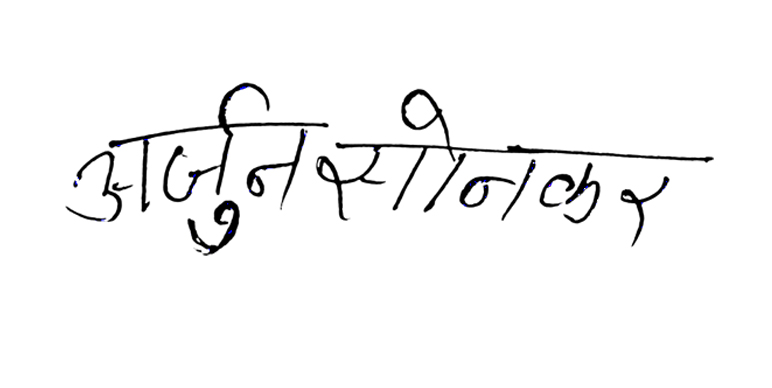 अर्जुन सोनकर